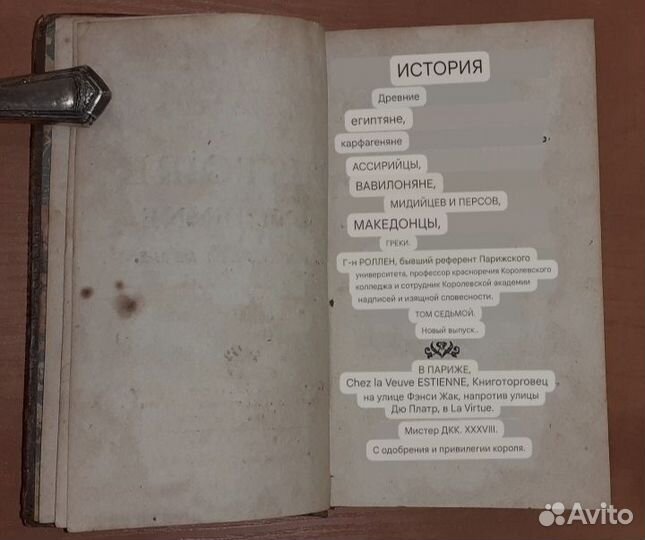 ИСТОРИЯ
Древние
египтяне,
карфагеняне
АССИРИЙЦЫ,
ВАВИЛОНЯНЕ,
МИДИЙЦЕВ И ПЕРСОВ,
МАКЕДОНЦЫ,
ГРЕКИ.
Г-н РОЛЛЕН, бывший референт Парижского
университета, профессор красноречия Королевского
колледжа и сотрудник Королевской академии
надписей и изящной словесности.
ТОМ СЕДЬМОЙ.
Новый выпуск..
В ПАРИЖЕ,
Chez la Veuve ESTIENNE, Книготорговец
на улице Фэнси Жак, напротив улицы
Дю Платр, в La Virtue.
Мистер ДКК. XXXVIII.
С одобрения и привилегии короля.
Avito